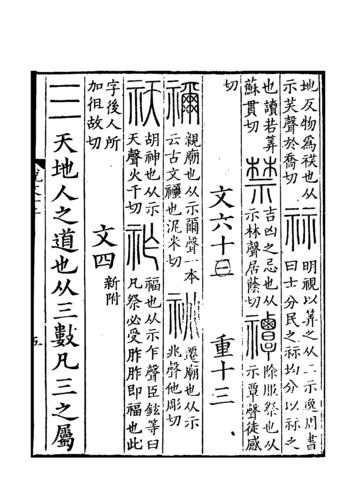 地反物爲祅也从
示芺聲於喬切
祘
明視以筭之从二示逸周書
曰士分民之祘均分以祘之
也讀若筭
蘇貫切
禁
吉凶之忌也从
示林聲居蔭切
禫
除服祭也从
示覃聲徒感
切
文六十三
重十三
禰
親廟也从示爾聲一本
云古文禰也泥米切
祧
遷廟也从示
兆聲他彫切
祆
胡神也从示
天聲火千切
祚
福也从示乍聲臣鉉等曰
凡祭必受胙胙即福也此
字後人所
加徂故切
文四
新附
三 天地人之道也从三數凡三之屬
五